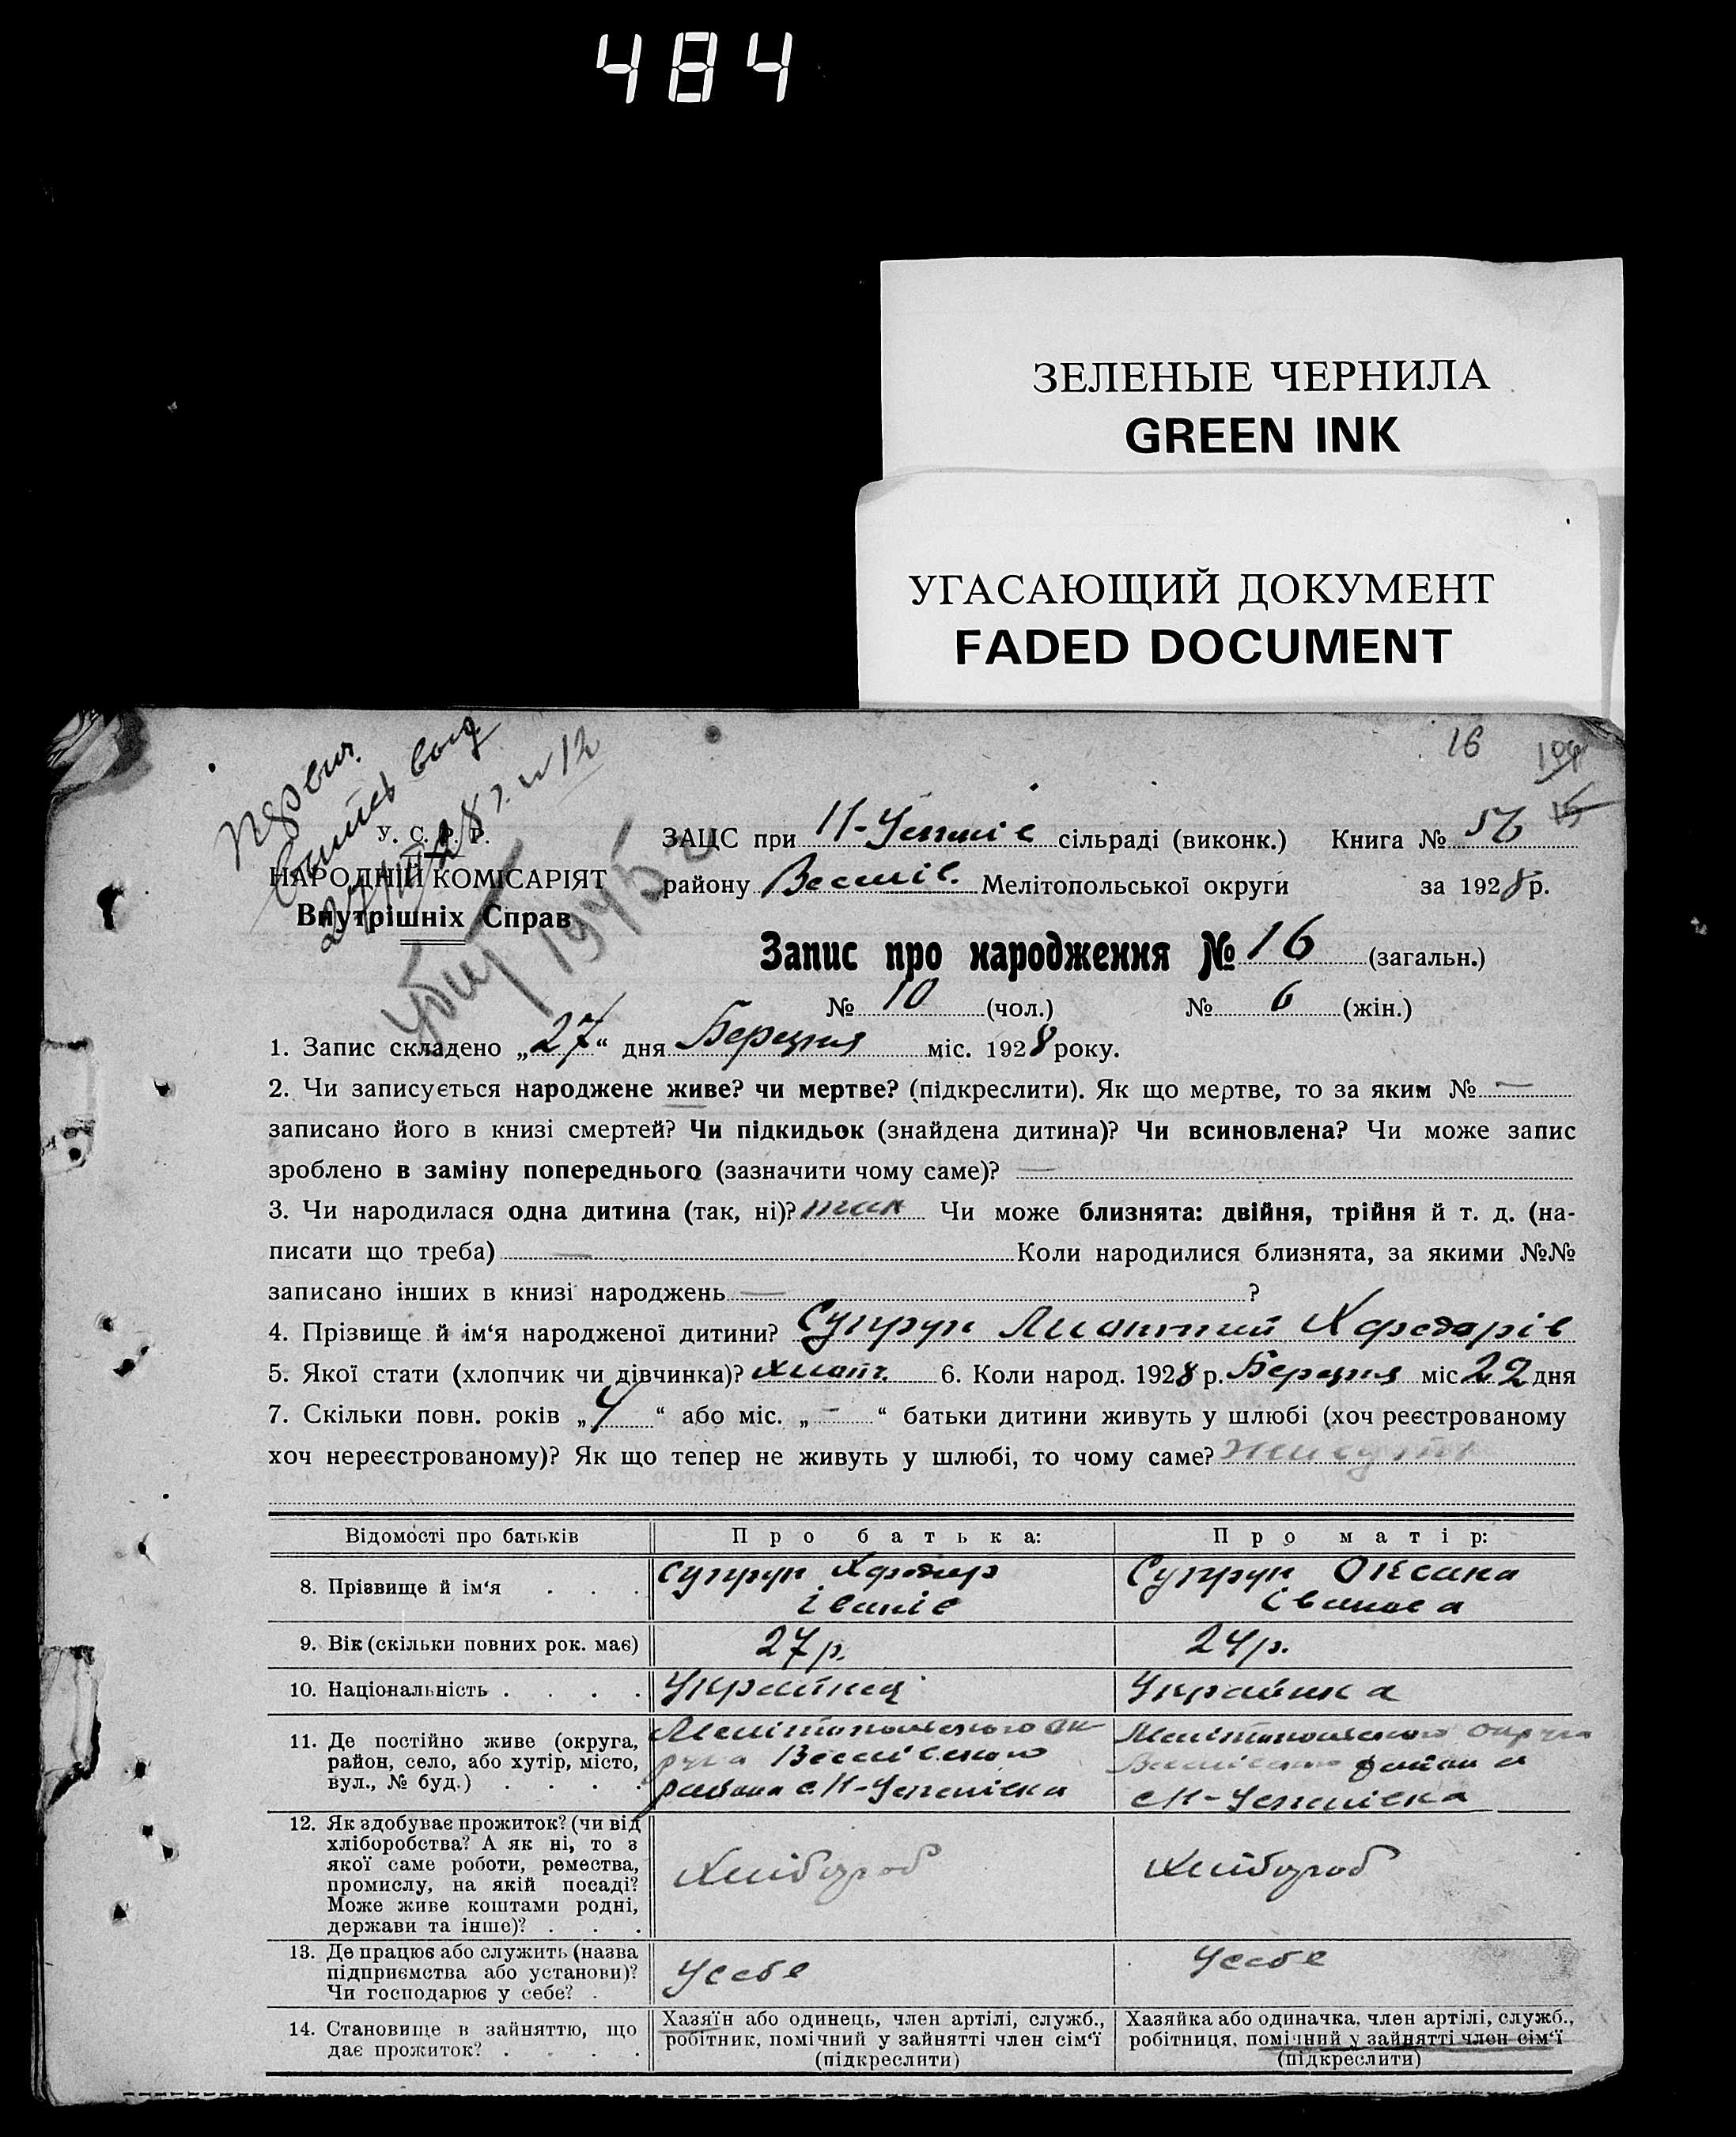 484
ЗЕЛЕНЫЕ ЧЕРНИЛА
GREEN INK
УГАСАЮЩИЙ ДОКУМЕНТ
FADED DOCUMENT
16
У. С. Р. Р.
НАРОДНІЙ КОМІСАРІЯТ
Внутрішніх Справ
убит 1945 г
ЗАЦС при Н-Успенів сільраді (виконк.) Книга №
району Веселів. Мелітопольської округи за 1928 р.
Запис про народження № 16 (загальн.)
№ 10 (чол.) № 6 (жін.)
1. Запис складено „27“ дня Березня міс. 1928 року.
2. Чи записується народжене живе? чи мертве? (підкреслити). Як що мертве, то за яким № —
записано його в книзі смертей? Чи підкидьок (знайдена дитина)? Чи всиновлена? Чи може запис
зроблено в заміну попереднього (зазначити чому саме)? —
3. Чи народилася одна дитина (так, ні)? так Чи може близнята: двійня, трійня й т. д. (на-
писати що треба) — Коли народилися близнята, за якими №№
записано інших в книзі народжень — ?
4. Прізвище й ім‘я народженої дитини? Супрун Хфедорів
5. Якої стати (хлопчик чи дівчинка)? хлопч. 6. Коли народ. 1928 р. Березня міс 22 дня
7. Скільки повн. років „4“ або міс. „-“ батьки дитини живуть у шлюбі (хоч реєстрованому
хоч нереєстрованому)? Як що тепер не живуть у шлюбі, то чому саме? живуть
Відомості про батьків Про батька: Про матір:
8. Прізвище й ім‘я . . . Супрун Хфедир Іванів Супрун Оксана Іванова
9. Вік (скільки повних рок. має) 27 р. 24 р.
10. Національність . . . . Українец Українка
11. Де постійно живе (округа,
район, село, або хутір, місто,
вул., № буд.) . . . .
Мелітопольського ок-
руга Веселівского
района с. Н-Успенівка
Мелітопольского округа
Веселівского района
с Н-Успенівка
12. Як здобуває прожиток? (чи від
хліборобства? А як ні, то з
якої саме роботи, ремества,
промислу, на якій посаді?
Може живе коштами родні,
держави та інше)? . . .
Хлібороб Хлібороб
13. Де працює або служить (назва
підприємства або установи)?
Чи господарює у себе? .
У себе У себе
14. Становище в зайняттю, що
дає прожиток? . . . .
Хазяїн або одинець, член артілі, служб.,
робітник, помічний у зайнятті член сім‘ї
(підкреслити)
Хазяйка або одиначка, член артілі, служб.,
робітниця, помічний у зайнятті член сім‘ї
(підкреслити)